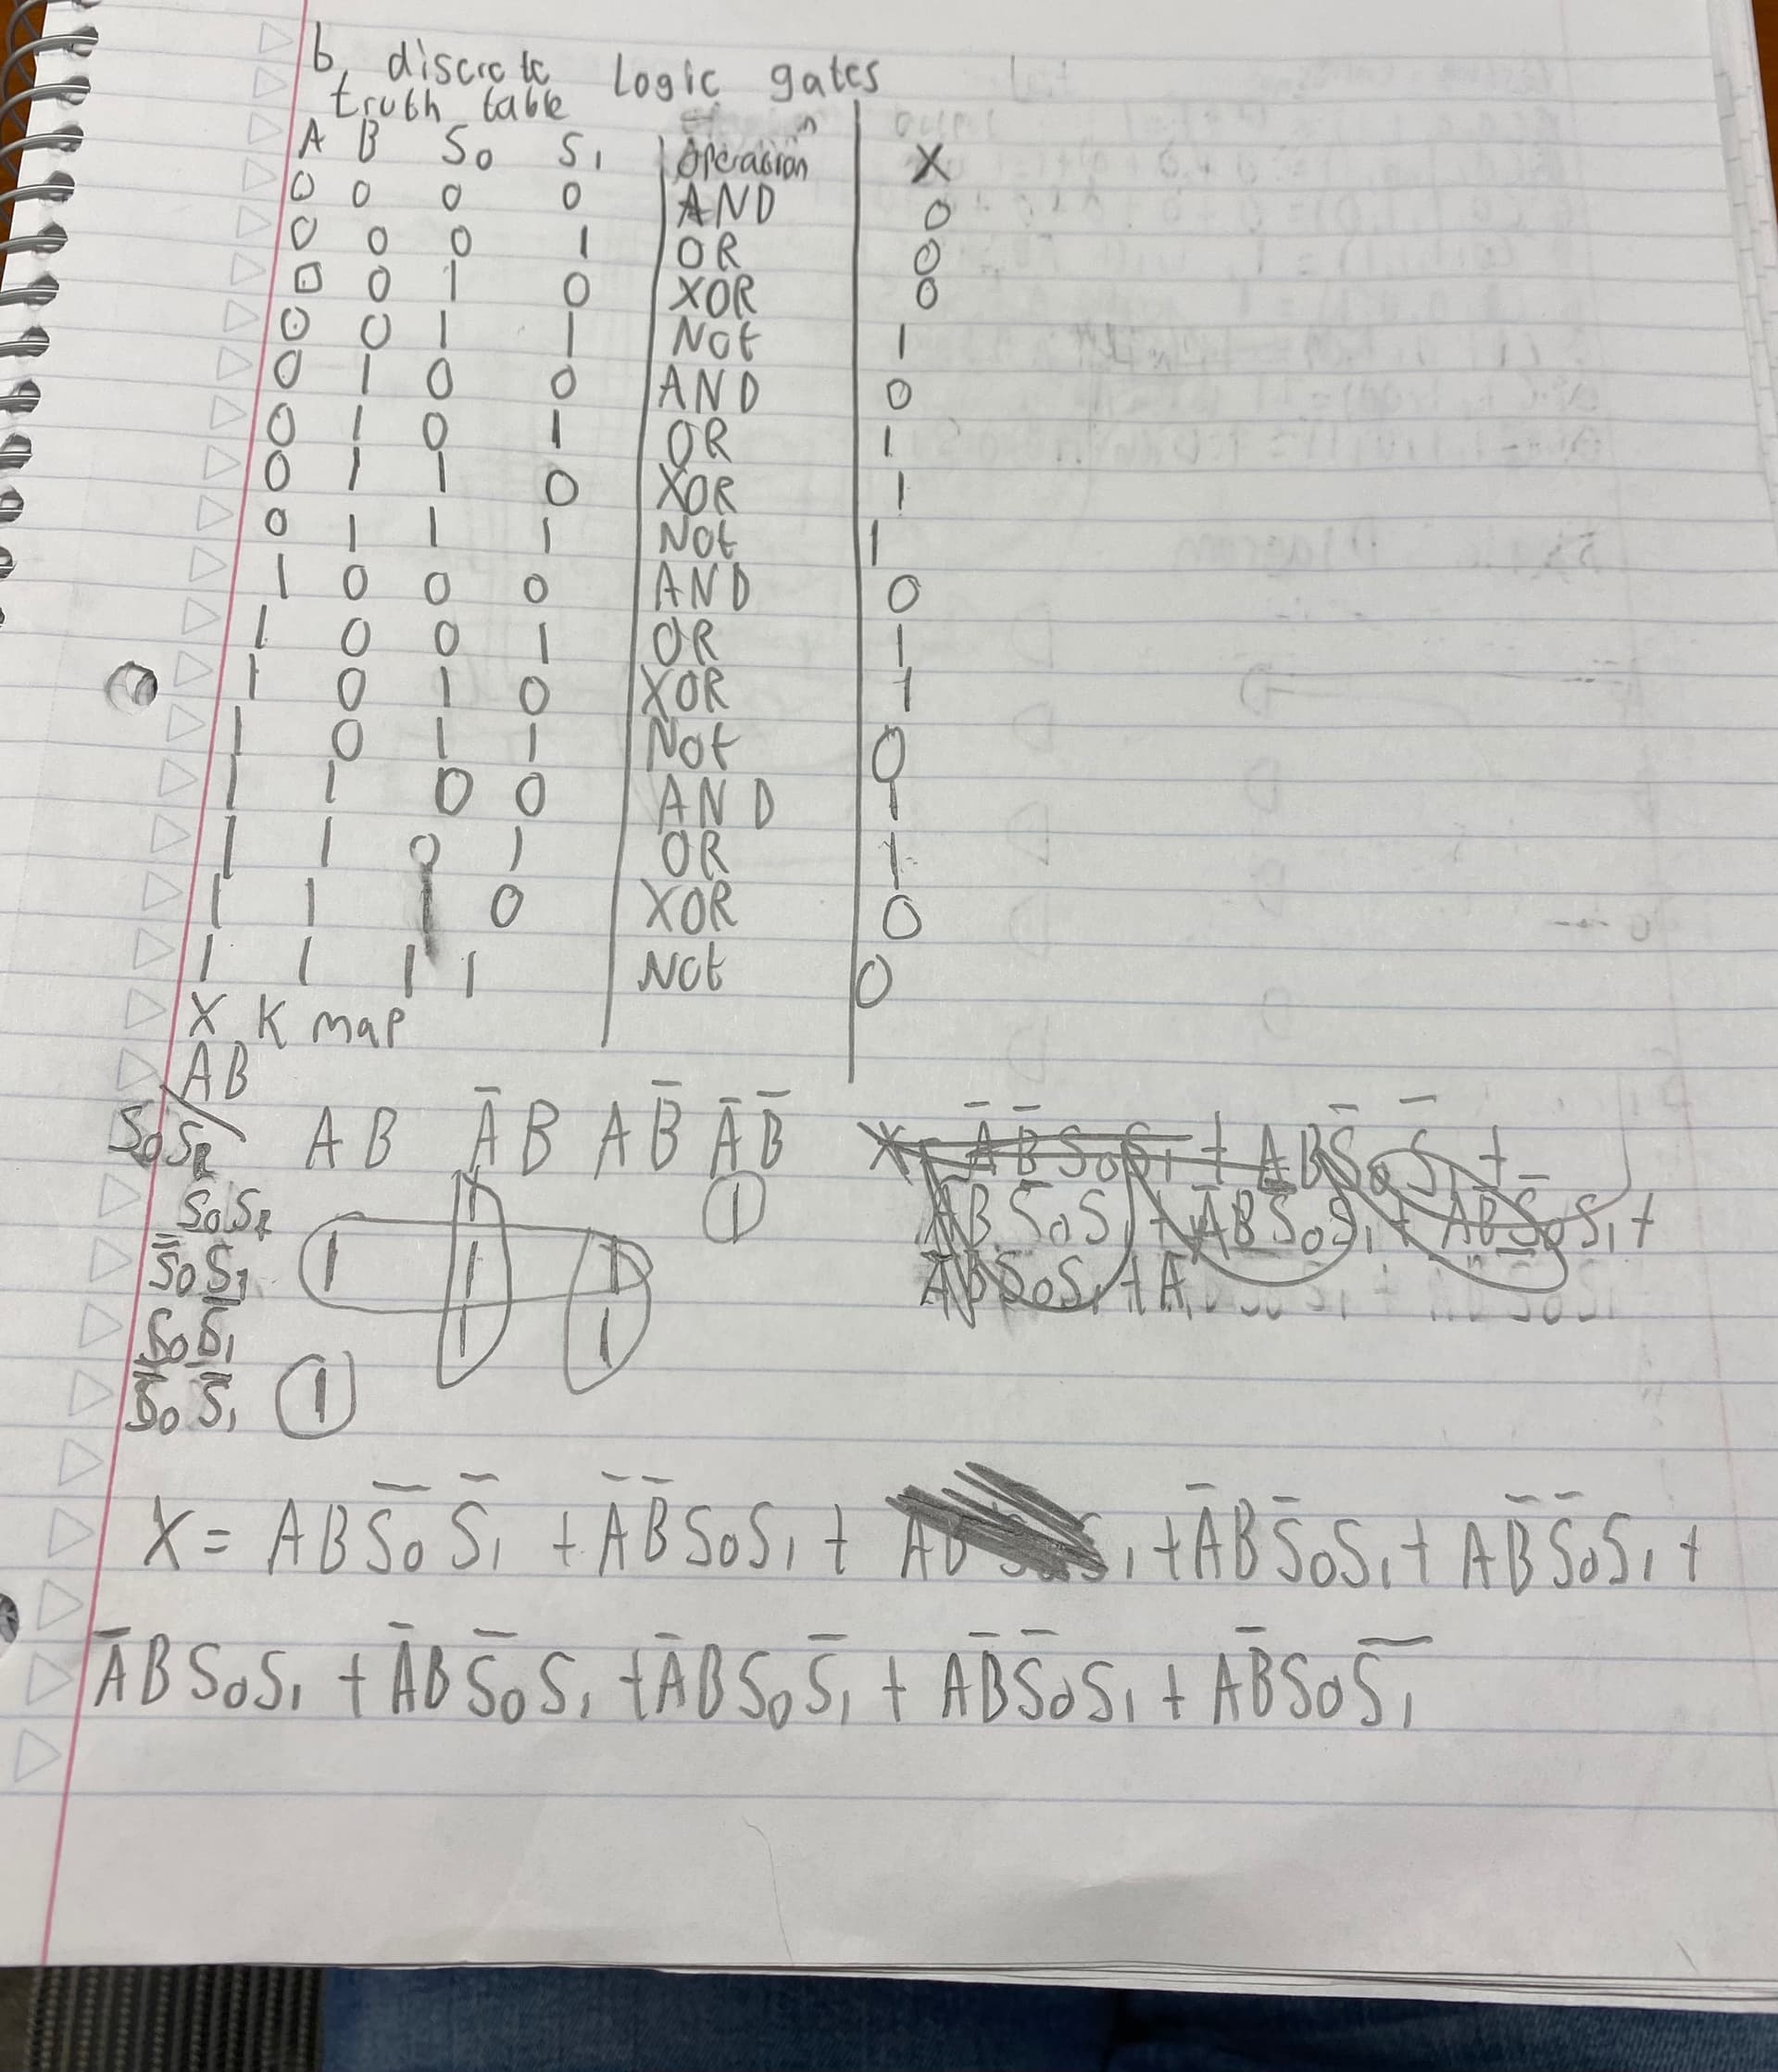 b, discrete Logic gates
truth table
A B S₀ S₁ Operation X
0 0 0 0 AND 0
0 0 0 1 OR 0
0 0 1 0 XOR 0
0 0 1 1 Not 1
0 1 0 0 AND 0
0 1 0 1 OR 1
0 1 1 0 XOR 1
0 1 1 1 Not 1
1 0 0 0 AND 0
1 0 0 1 OR 1
1 0 1 0 XOR 1
1 0 1 1 Not 0
1 1 0 0 AND 1
1 1 0 1 OR 1
1 1 1 0 XOR 0
1 1 1 1 Not 0
X K map
AB
S₀S₁ AB A̅B AB̅ A̅B̅
S₀S₁ 1 1
S̅₀S₁ 1 1 1
S₀S̅₁ 1 1
S̅₀S̅₁ 1
X = ABS̅₀S̅₁ + A̅B̅S₀S₁ + + A̅BS̅₀S₁ + AB̅S̅₀S₁ +
A̅BS₀S₁ + A̅BS̅₀S₁ + A̅BS₀S̅₁ + AB̅S̅₀S₁ + AB̅S₀S̅₁